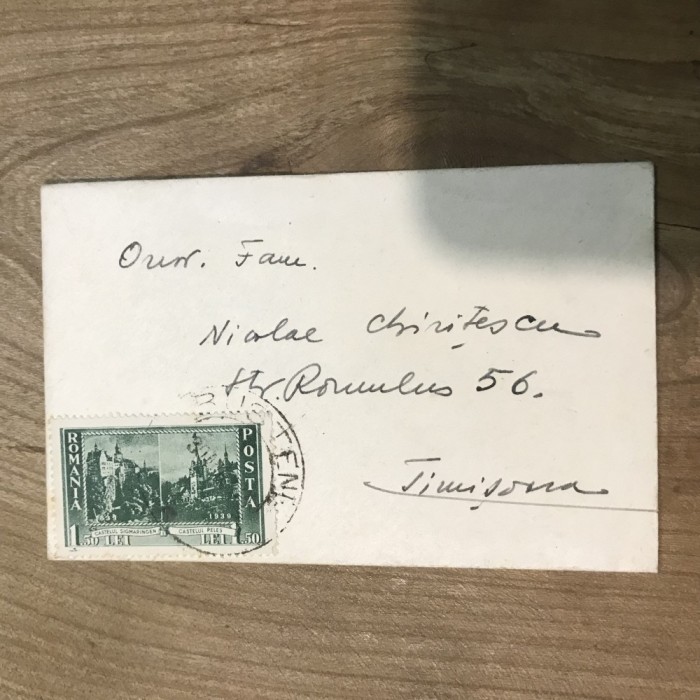 Onor. Fam.
Nicolae Chirițescu
Str. Romulus 56.
Timișoara
BUȘTENI
ROMANIA
POSTA
1939
CASTELUL SIGMARINGEN
CASTELUL PELES
1.50 LEI
LEI 1.50